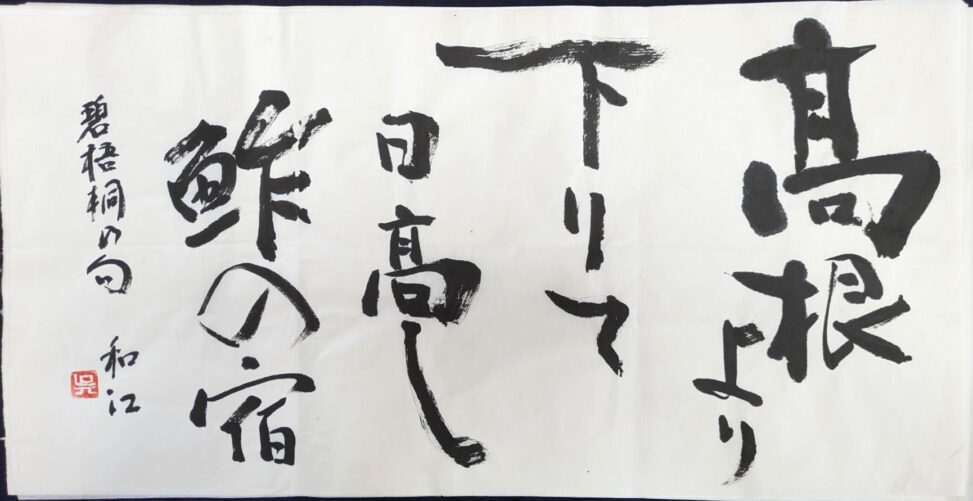 髙根より
下りて
日髙し
鮓の宿
碧梧桐の句
和江
呉